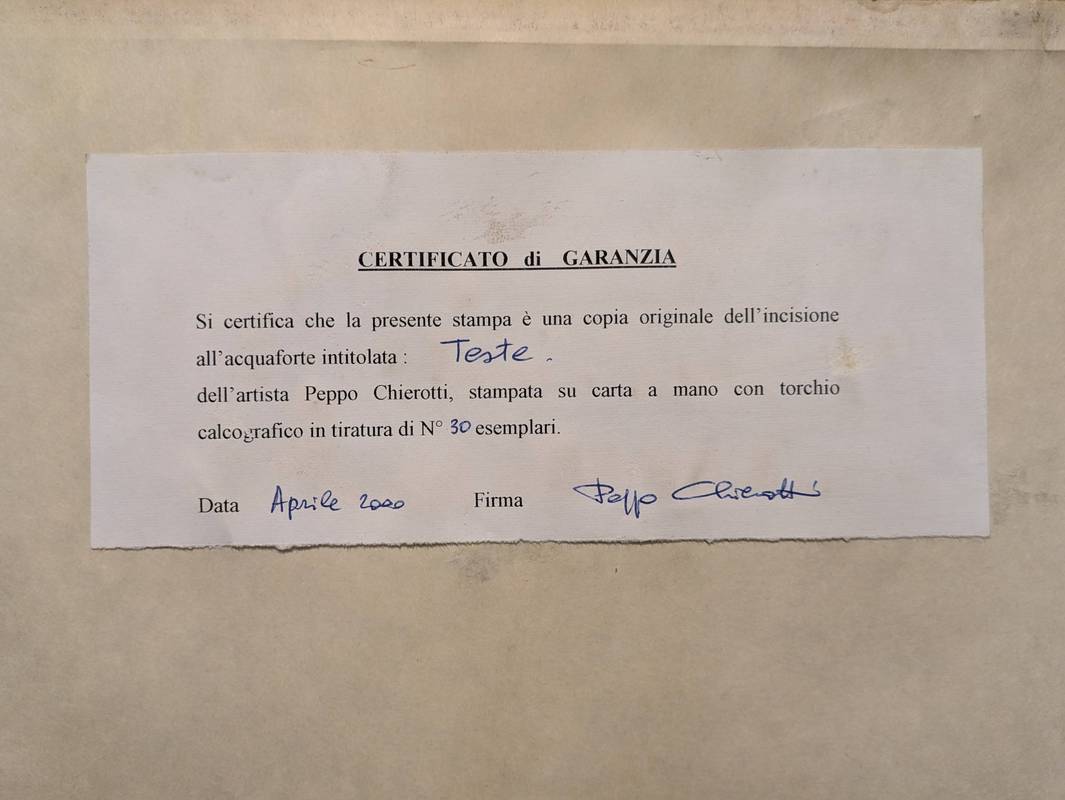 CERTIFICATO di GARANZIA
Si certifica che la presente stampa è una copia originale dell'incisione
all'acquaforte intitolata : Teste .
dell'artista Peppo Chierotti, stampata su carta a mano con torchio
calcografico in tiratura di N° 30 esemplari.
Data Aprile 2000 Firma Peppo Chierotti